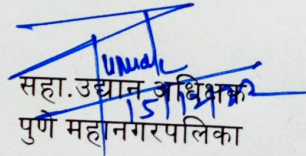 सहा. उद्यान अधिक्षक
पुणे महानगरपालिका